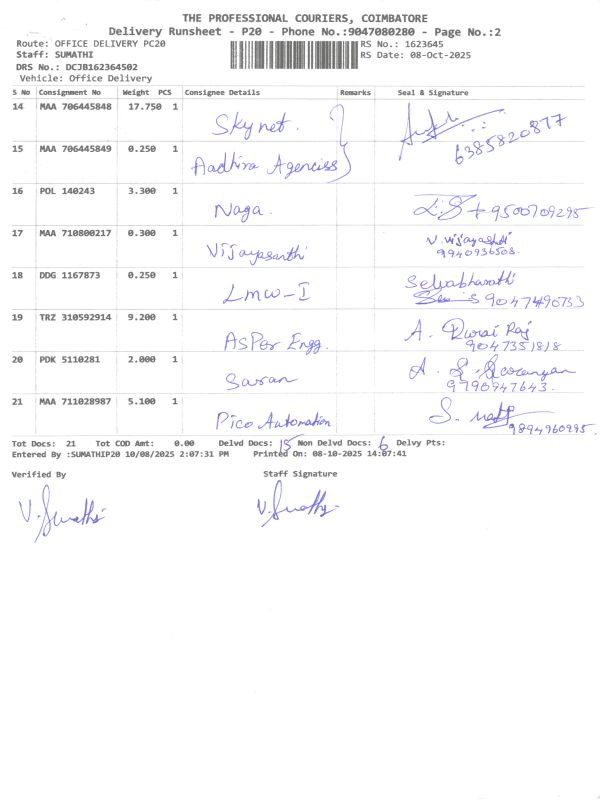 THE PROFESSIONAL COURIERS, COIMBATORE
Delivery Runsheet - P20 - Phone No.:9047080280 - Page No.:2
Route: OFFICE DELIVERY PC20 RS No.: 1623645
Staff: SUMATHI RS Date: 08-Oct-2025
DRS No.: DCJB162364502
Vehicle: Office Delivery
S No Consignment No Weight PCS Consignee Details Remarks Seal & Signature
14 MAA 706445848 17.750 1 Skynet. 6385820877
15 MAA 706445849 0.250 1 Aadhira Agenciss
16 POL 140243 3.300 1 Naga. 9500709295
17 MAA 710800217 0.300 1 Vijayasanthi V. Vijayashdi
9940936508.
18 DDG 1167873 0.250 1 LMW-I Selvabharathi
9047490733
19 TRZ 310592914 9.200 1 AsPer Engg. A. Durai Raj
9047351818
20 PDK 5110281 2.000 1 Saran A. S.
9790947643.
21 MAA 711028987 5.100 1 Pico Automation S.
9894960995.
Tot Docs: 21 Tot COD Amt: 0.00 Delvd Docs: 15 Non Delvd Docs: 6 Delvy Pts:
Entered By :SUMATHIP20 10/08/2025 2:07:31 PM Printed On: 08-10-2025 14:07:41
Verified By Staff Signature
V. Sumathi V. Sumathi